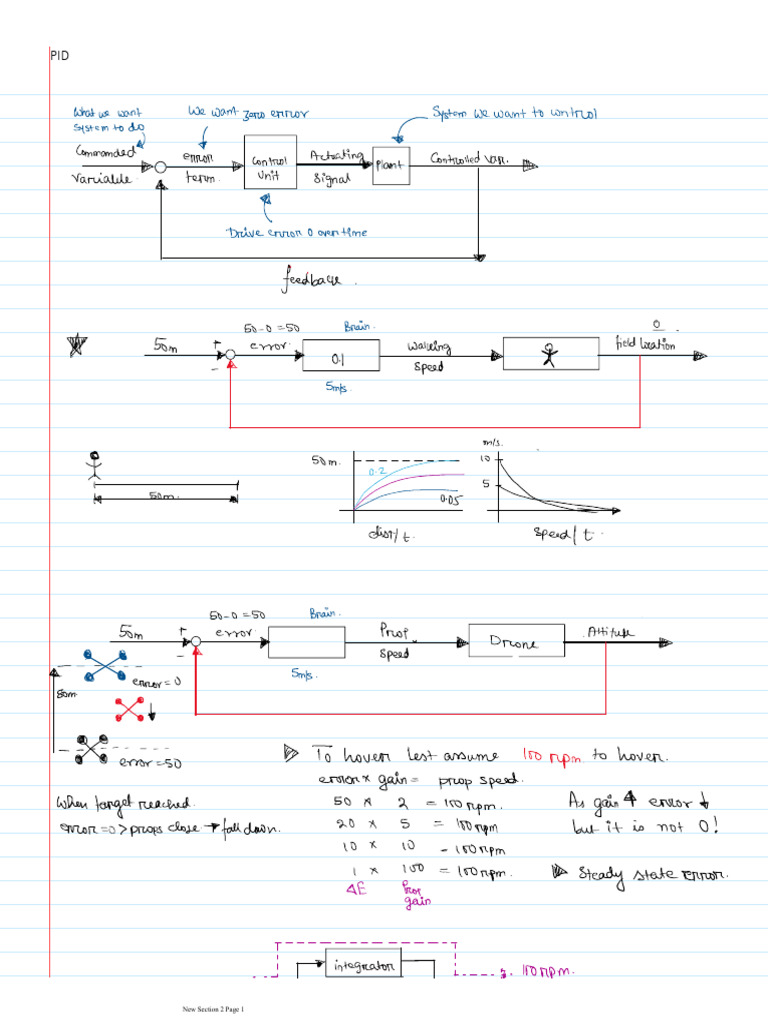 PID
What we want
system to do
We want zero error
System we want to control
Commanded
Variable
error
term.
Control
Unit
Actuating
Signal
Plant
Controlled Var.
Drive error 0 over time
feedback.
50m
+
-
50-0=50
error.
Brain.
0.1
5m/s.
Walking
Speed
0
field location
50m.
50m.
0.2
0.05
dist/t.
m/s.
10
5
Speed/t.
50m
+
-
50-0=50
error.
Brain.
5m/s.
Prop
Speed
Drone
Altitude
error=0
50m
error=50
To hover lest assume 100 rpm to hover.
error x gain = prop speed.
50 x 2 = 100rpm.
20 x 5 = 100rpm
10 x 10 - 100rpm
1 x 100 = 100rpm.
ΔE
Prop
gain
When target reached.
error=0 > props close → fall down.
As gain ↑ error ↓
but it is not 0!
Steady state error.
integrator
100rpm.
New Section 2 Page 1